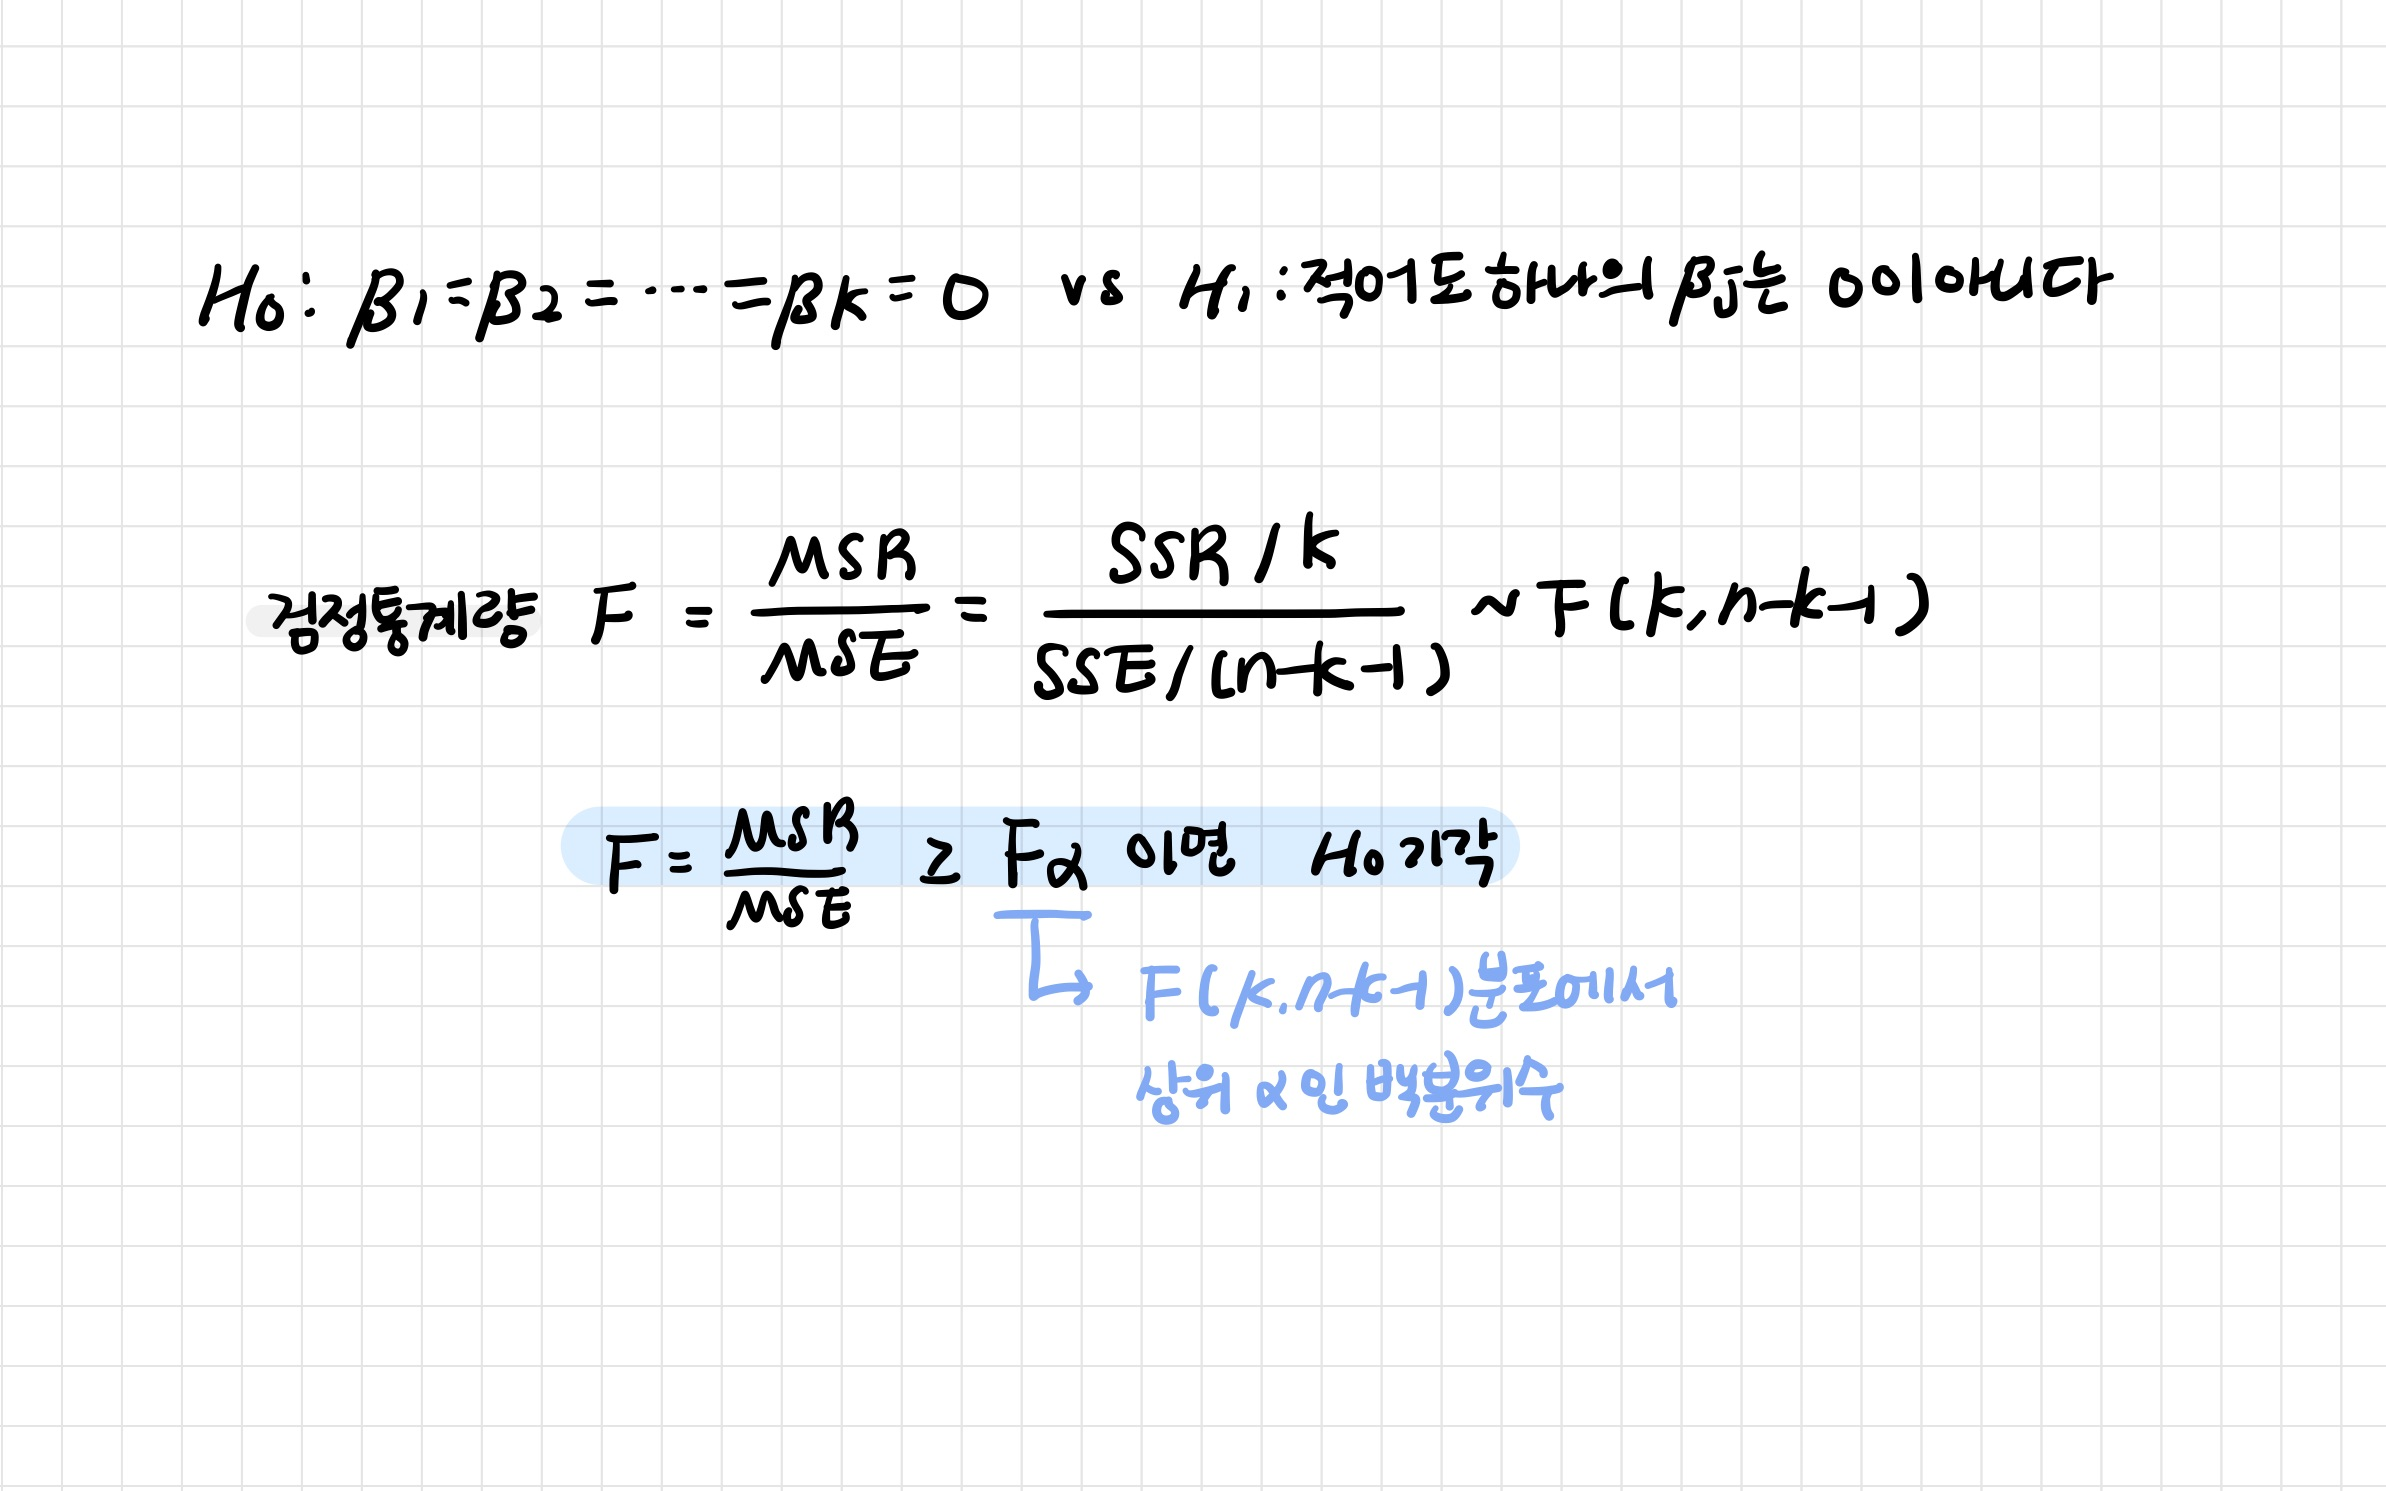 H₀ : β₁ = β₂ = ⋯ = βk = 0 vs H₁ : 적어도 하나의 βj는 0이 아니다
검정통계량 F = MSR / MSE = SSR / k / SSE / (n-k-1) ~ F(k, n-k-1)
F = MSR / MSE ≥ Fα 이면 H₀ 기각
F(k, n-k-1)분포에서
상위 α인 백분위수